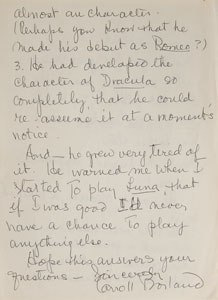 almost an character.
(Perhaps you know that he
made his debut as Romeo?)
3. He had developed the
character of Dracula so
completely, that he could
re assume it at a moment's
notice.
And – he grew very tired of
it. He warned me when I
started to play Luna, that
if I was good I'll never
have a chance to play
anything else.
Hope this answers your
questions – Sincerely
Carroll Borland